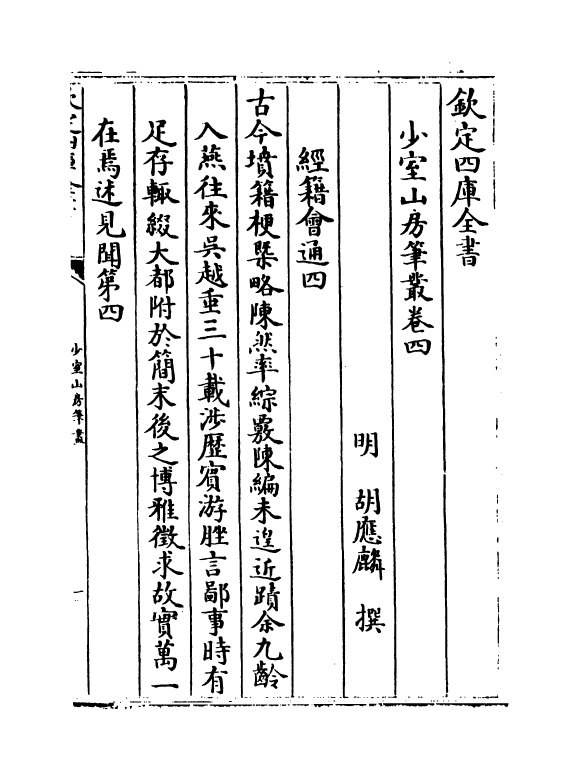 欽定四庫全書
少室山房筆叢卷四
明 胡應麟 撰
經籍會通四
古今墳籍梗槩略陳然率綜覈陳編未遑近蹟余九齡
入燕往來吳越垂三十載涉歷賓游脞言鄙事時有
足存輒綴大都附於簡末後之博雅徵求故實萬一
在焉述見聞第四
少室山房筆叢
一